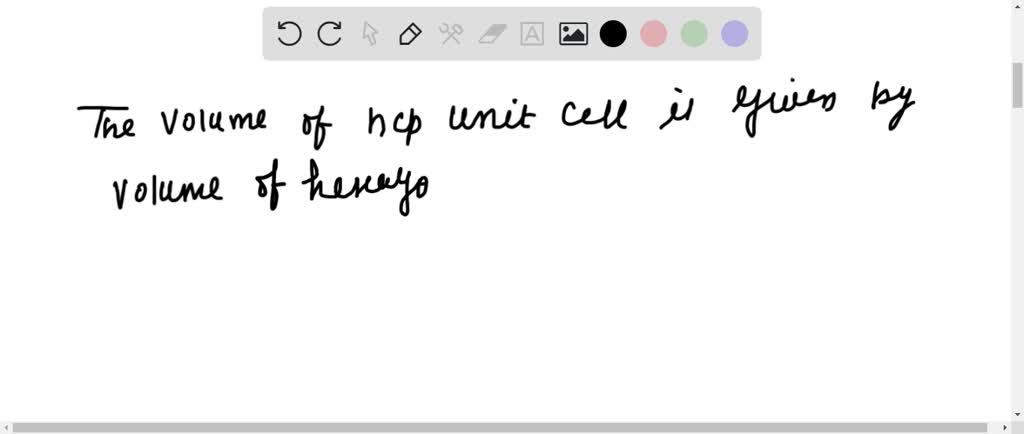 The volume of hcp unit cell is given by
volume of hexago